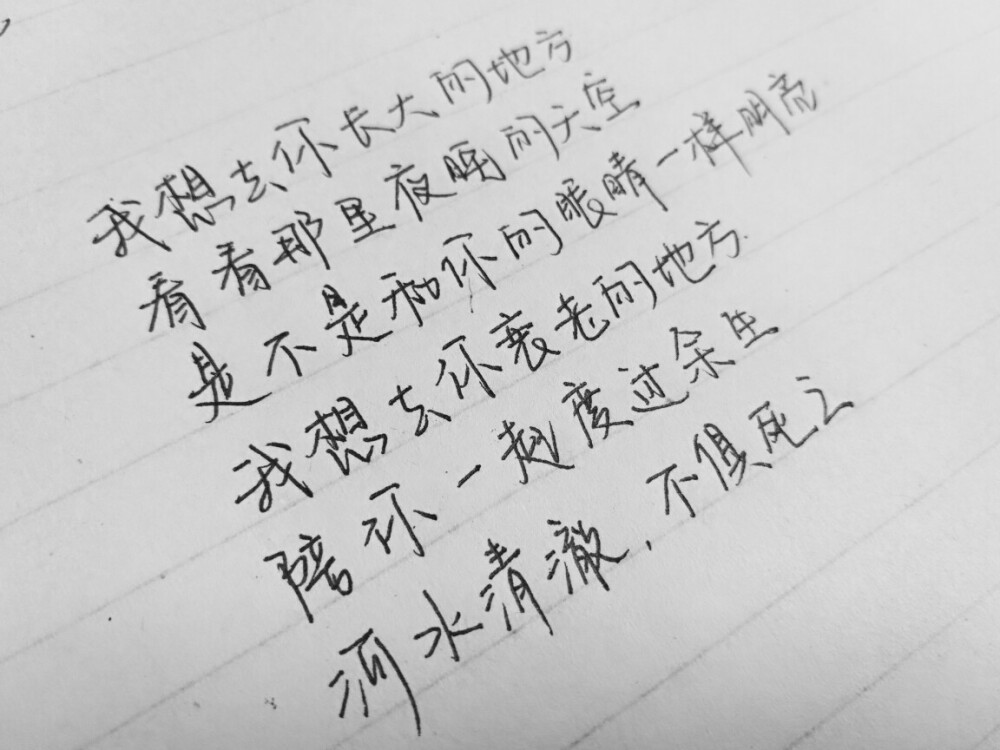 我想去你长大的地方
看看那里夜晚的天空
是不是和你的眼睛一样明亮
我想去你衰老的地方
陪你一起度过余生
河水清澈，不惧死亡